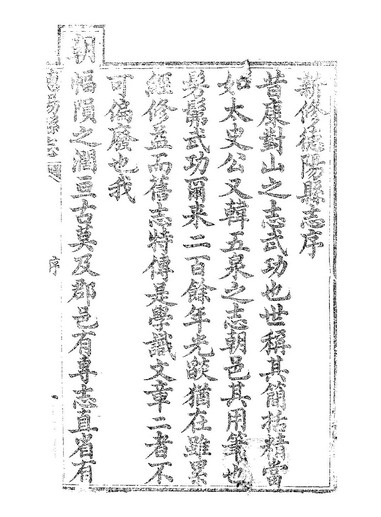 新修德陽縣志序
昔康對山之志武功也世稱其簡括精當
如太史公又韓五泉之志朝邑其用筆也
髣髴武功爾來二百餘年光燄猶在雖累
經修益而舊志特傳是學識文章二者不
可偏廢也我
朝幅隕之濶亘古莫及郡邑有專志直省有
陽縣志
序